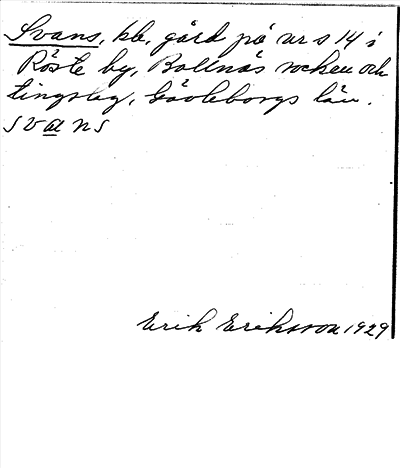 Svans, kb, gård på nr s 14 i
Röste by, Bollnäs socken och
tingslag, Gävleborgs län.
svans
Erik Eriksson 1929